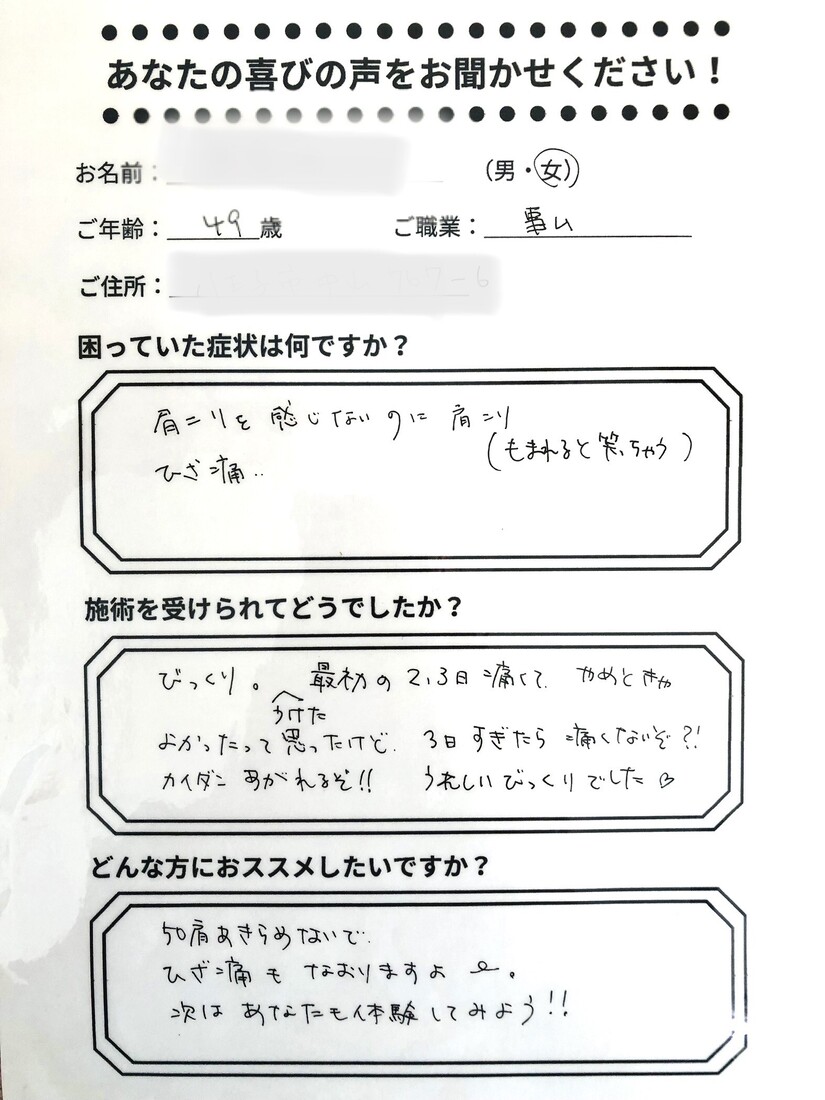 あなたの喜びの声をお聞かせください！
お名前： （男・女）
ご年齢： 49 歳 ご職業： 事ム
ご住所：
困っていた症状は何ですか？
肩コリを感じないのに肩コリ
（もまれると笑っちゃう）
ひざ痛..
施術を受けられてどうでしたか？
びっくり。 最初の2,3日痛くて やめときゃ
うけた
よかったって思ったけど. 3日すぎたら 痛くないぞ?!
カイダン あがれるぞ!! うれしいびっくりでした♡
どんな方におススメしたいですか？
50肩あきらめないで.
ひざ痛も なおりますよ 。
次は あなたも体験してみよう!!